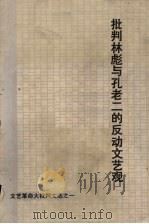 批判林彪与孔老二的反动文艺观
文艺革命大批 之一